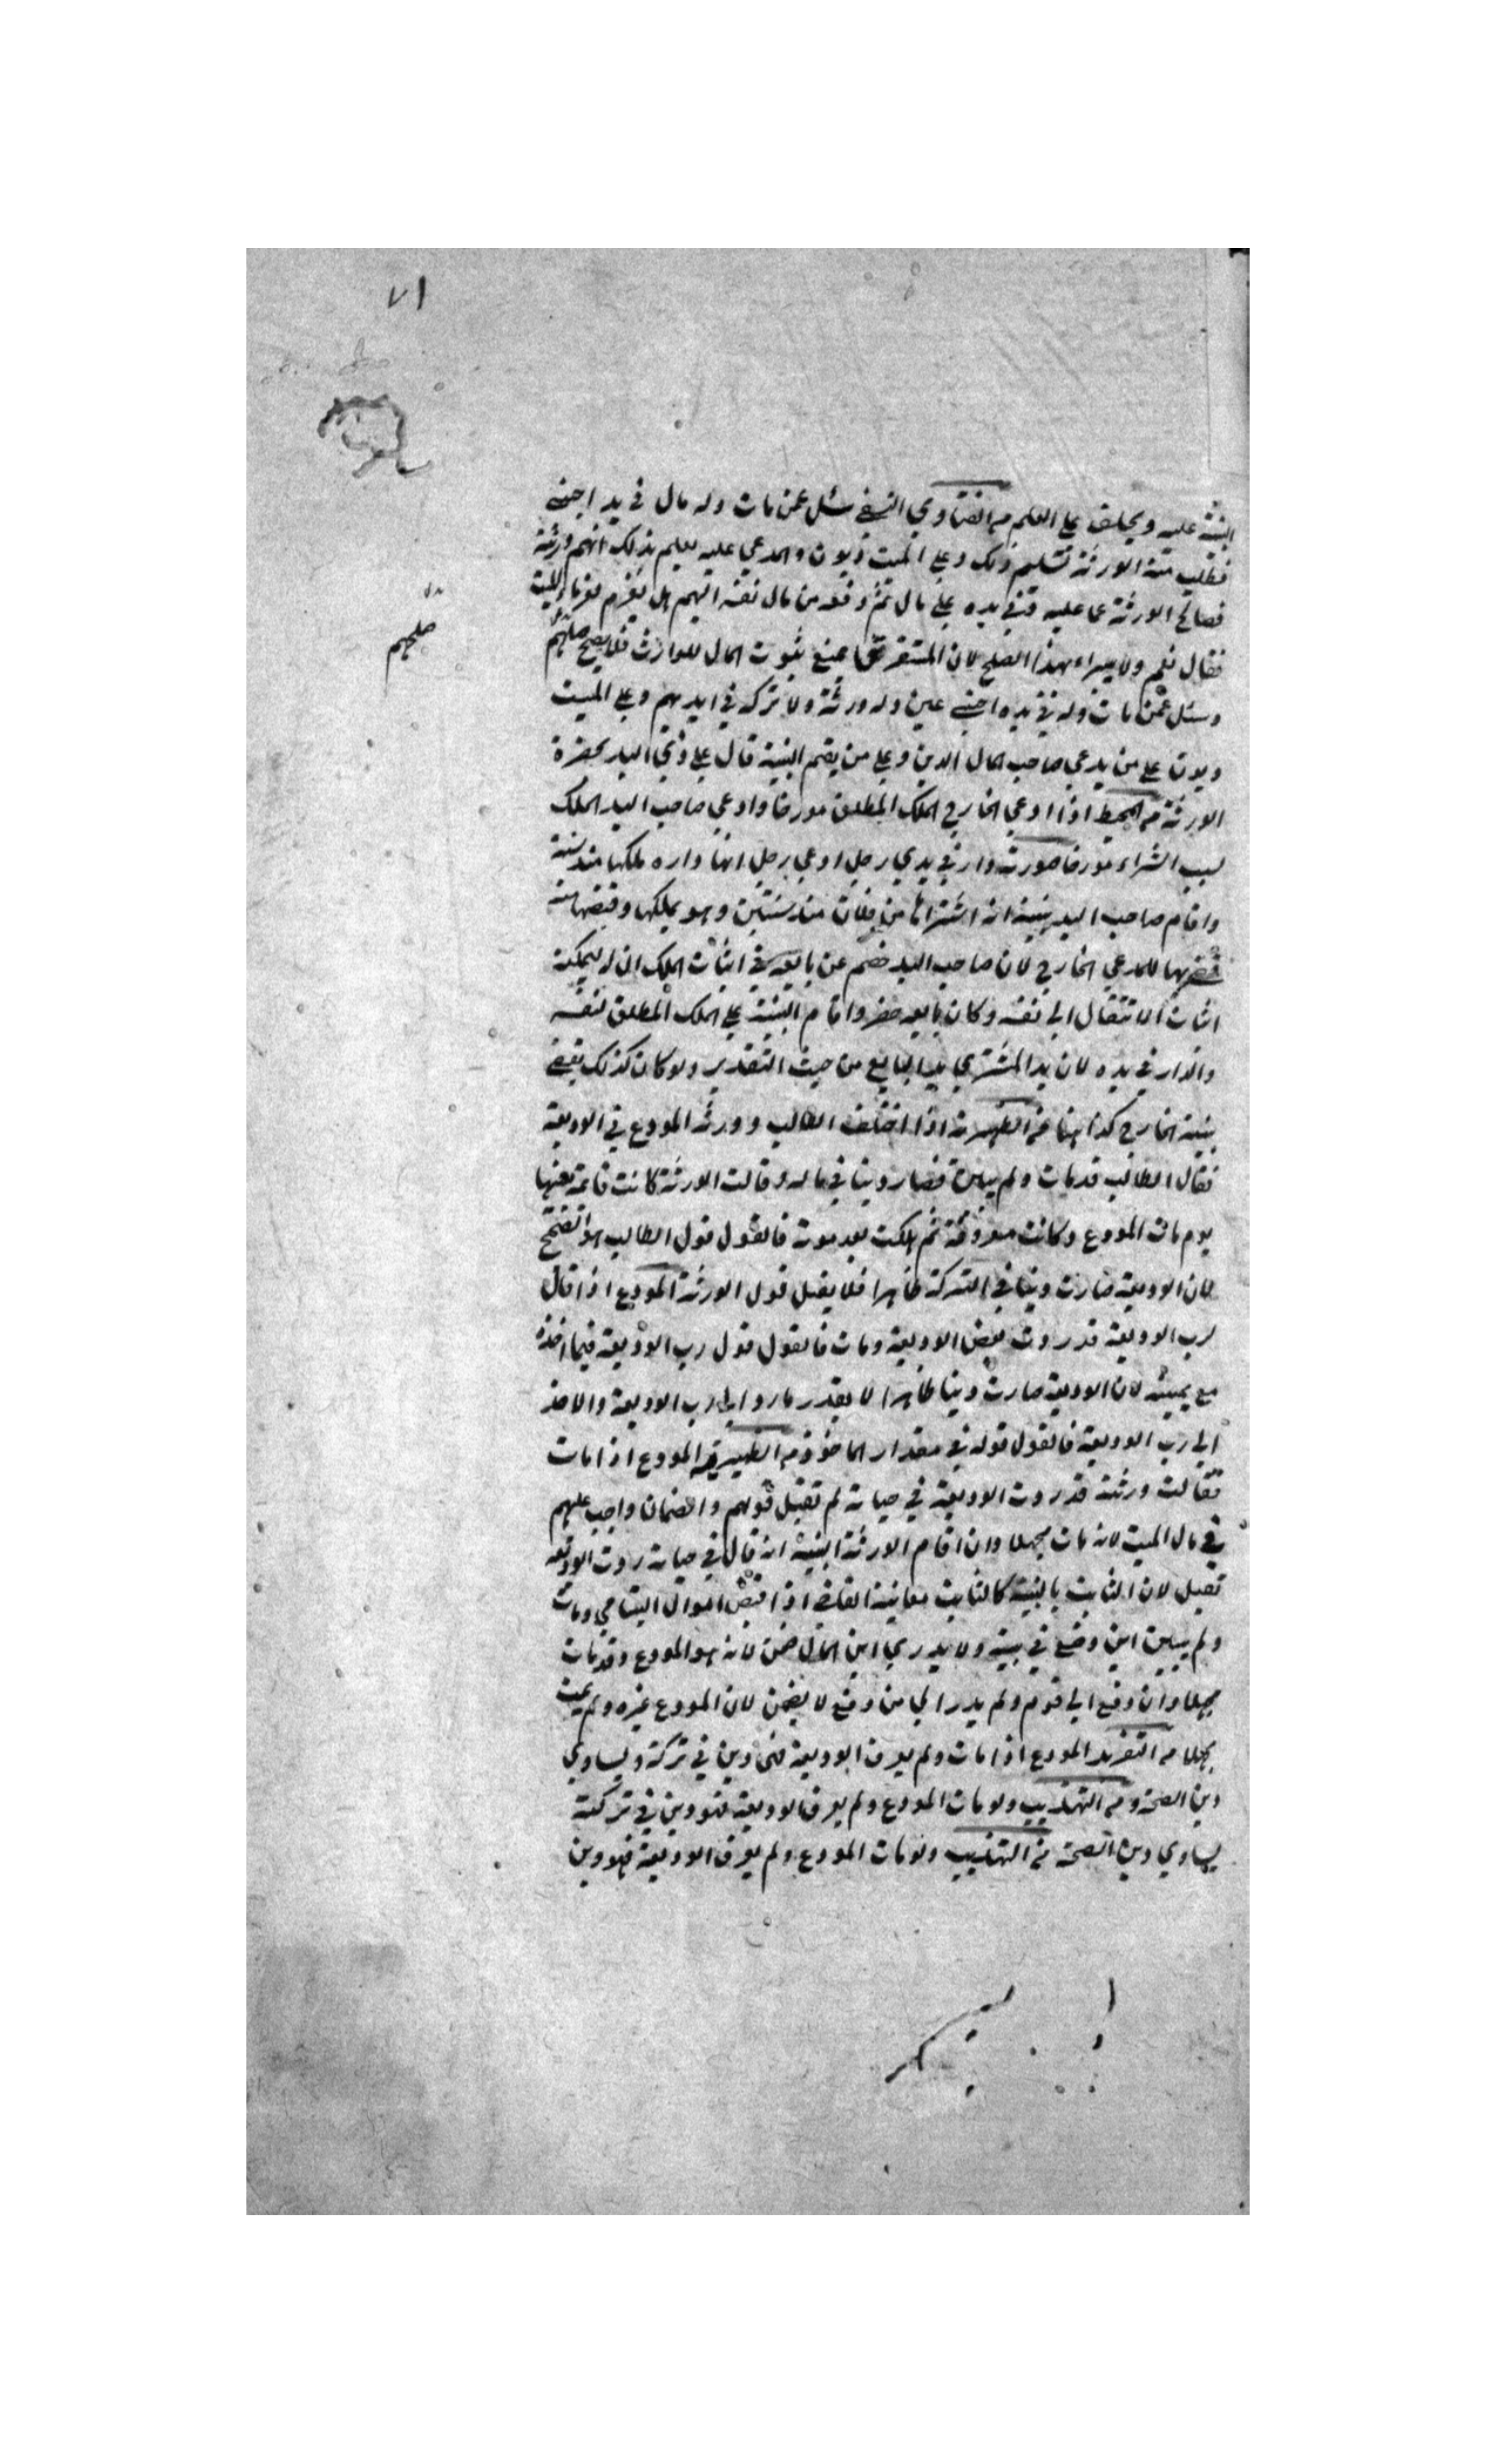 ٧١
البينة عليه ويحلف على العلم من الفتاوي النسفي سئل عمن مات وله مال في يد اجنبي
فطلب منه الورثة تسليم ذلك وعلى الميت ديون والمدعي عليه يعلم بذلك انهم ورثة
فصالح الورثة عما عليه وفي يده على مال ثم دفعه من مال نفسه اليهم هل يغرم لغرماء الميت
فقال نعم ولا يبراء بهذا الصلح لان المستغرق يمنع ثبوت المال للوارث فلا يصح صلحهم
صلحهم
وسئل عمن مات وله في يده اجنبي عين وله ورثة ولا تركه في ايديهم وعلى الميت
ديون على من يدعي صاحب المال الدين وعلى من يقيم البينة قال على ذي اليد بحضرة
الورثة من المحيط اذا ادعي الخارج الملك المطلق مورخا وادعي صاحب اليد الملك
بسبب الشراء مورخا صورته دار في يدي رجل ادعي رجل انها داره ملكها منذ سنة
واقام صاحب اليد بينة انه اشتراها من فلان منذ سنتين وهو يملكها وقبضها منه
للمدعي الخارج لان صاحب اليد خصم عن بايعه في اثبات الملك له ليمكنه
اثبات الانتقال الى نفسه وكان بايعه حضر واقام البينة على الملك المطلق لنفسه
والدار في يده لان يد المشتري يد البايع من حيث التقدير ولو كان كذلك يقضى
ببينة الخارج كذا هنا من الظهيرية اذا اختلف الطالب وورثة المودع في الوديعة
فقال الطالب قد مات ولم يبين فصار دينا في ماله وقالت الورثة كانت قائمة بعينها
يوم مات المودع وكانت معروفة ثم هلكت بعد موته فالقول قول الطالب هو الصحيح
لان الوديعة صارت دينا في التركة ظاهرا فلا يقبل قول الورثة المودع اذا قال
لرب الوديعة قد ردت بعض الوديعة ومات فالقول قول رب الوديعة فيما اخذه
مع يمينه لان الوديعة صارت دينا ظاهرا لا بقدر ما رد الى رب الوديعة والاخذ
الى رب الوديعة فالقول قوله في مقدار الماخوذ من الظهيرية المودع اذا مات
فقالت ورثته قد ردت الوديعة في حياته لم تقبل قولهم والضمان واجب عليهم
في مال الميت لانه مات مجهلا وان اقام الورثة البينة انه قال في حياته ردت الوديعة
تقبل لان الثابت بالبينة كالثابت معاينة القاضي اذا قبض اموال اليتامي ومات
ولم يبين اين وضع في بيته ولا يدري اين المال ضمن لانه هو المودع وقد مات
مجهلا وان دفع الى قوم ولم يدر الى من دفع لا يضمن لان المودع غيره ولم يمت
مجهلا من التفريد المودع اذا مات ولم يعرف الوديعة فهي دين في تركته ويساوي
دين الصحة ومن التهذيب ولو مات المودع ولم يعرف الوديعة فهو دين في تركته
يساوي دين الصحة من التهذيب ولو مات المودع ولم يعرف الوديعة فهو دين